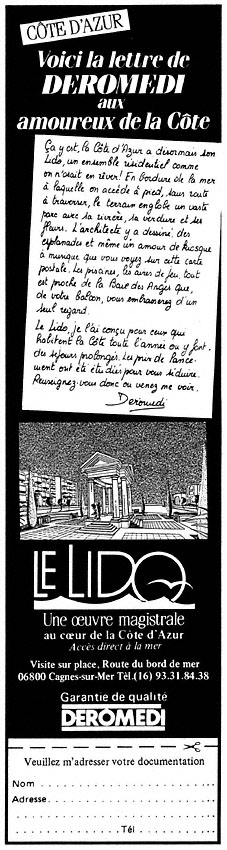 CÔTE D'AZUR
Voici la lettre de
DEROMEDI
aux
amoureux de la Côte
Ça y est, la Côte d'Azur a désormais son
Lido, un ensemble résidentiel comme
on n'osait en rêver! En bordure de la mer
à laquelle on accède à pied, sans route
à traverser, le terrain englobe un vaste
parc avec sa rivière, sa verdure et ses
fleurs. L'architecte y a dessiné des
esplanades et même un amour de kiosque
à musique que vous voyez sur cette carte
postale. Les piscines, les aires de jeu, tout
est proche de la Baie des Anges que,
de votre balcon, vous embrasserez d'un
seul regard.
Le Lido, je l'ai conçu pour ceux qui
habitent la Côte toute l'année ou y font
des séjours prolongés. Les prix de lance-
ment ont été étudiés pour vous séduire.
Renseignez-vous donc ou venez me voir.
Deromedi
LE LIDO
Une œuvre magistrale
au cœur de la Côte d'Azur
Accès direct à la mer
Visite sur place, Route du bord de mer
06800 Cagnes-sur-Mer Tél.(16) 93.31.84.38
Garantie de qualité
DEROMEDI
Veuillez m'adresser votre documentation
Nom
Adresse
Tél